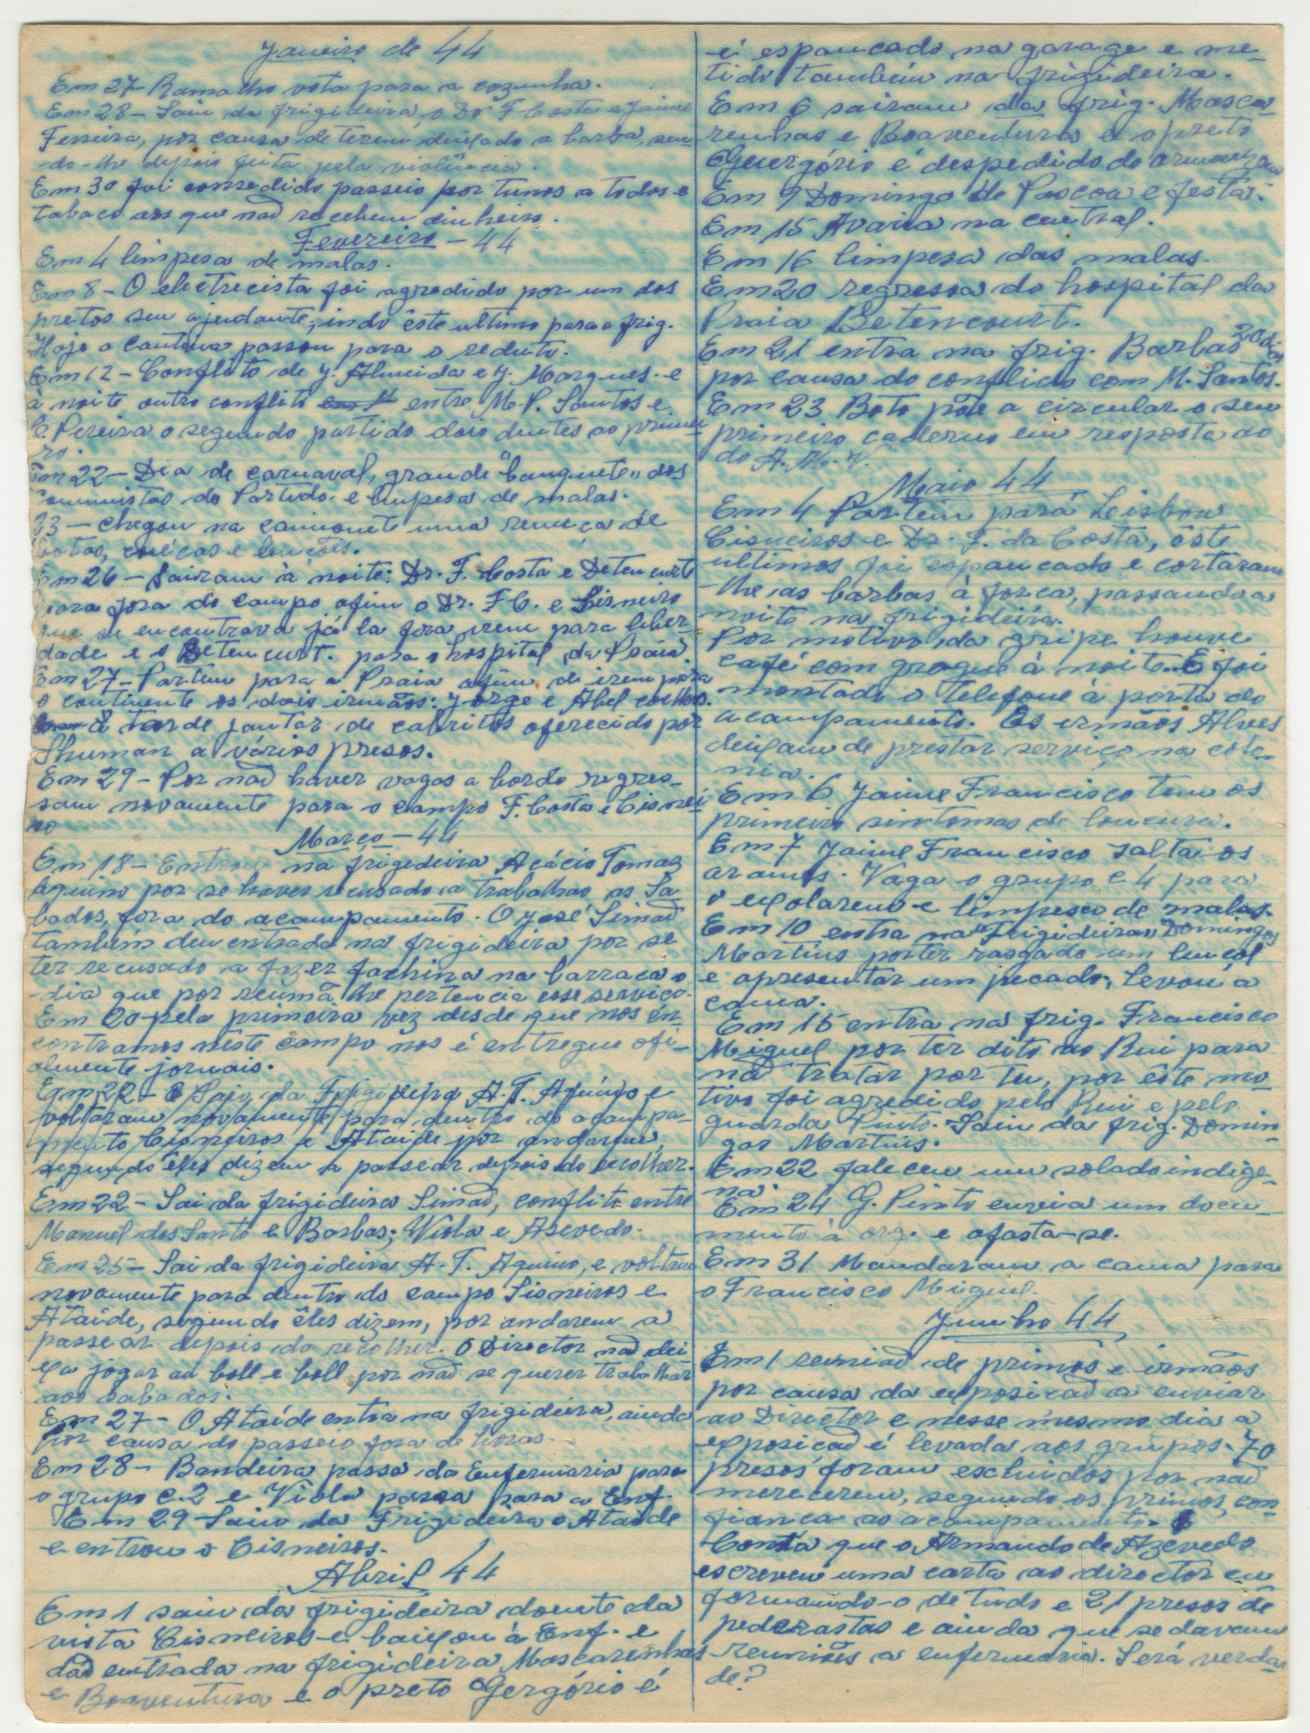 Janeiro de 44
Em 27 Ramalho vota para a cozinha.
Em 28 - Saiu da frigideira, o Dr F. Costa e Jaime
Ferreira, por causa de terem deixado a barba, sen
do-lhe depois feita pela violência.
Em 30 foi consedido passeio por turnos a todos e
tabaco aos que naõ recebem dinheiro.
Fevereiro - 44
Em 4 limpesa de malas.
Em 8 - O electrecista foi agredido por um dos
pretos seu ajudante, indo êste ultimo para a frig.
Hoje a cantina passou para o reduto.
Em 12 - Conflito de J. Almeida e J. Marques. e
à noite outro conflito entre M. P. Santos e
C. Pereira o segundo partido dois dentes ao primei
ro.
Em 22 - Dia de carnaval, grande "banquete" dos
Comunistas do Partido. e limpesa de malas.
23 - chegou na camionet uma remeça de
botas, cuécas e lencois.
Em 26 - Sairam à noite: Dr. F. Costa e Betencurt
para fora do campo afim o Dr. F. C. e Sisneiro
que se encontrava já la fora irem para liber
dade e o Betencurt. para o hospital da Praia.
Em 27 - Partem para a Praia afim de irem para
o continente os dois irmãos: Jorge e Abel coelho.
à tarde jantar de cabritos oferecido por
Shuman a vários presos.
Em 29 - Por naõ haver vagas a bordo regres-
sam novamente para o campo F. Costa e Cisnei
ro
Março - 44
Em 18 - Entrou na frigideira Acácio Tomaz
Aquino por se haver recusado a trabalhar as Sa
bados, fora do acampamento. O José Simaõ
também deu entrada na frigideira por se
ter recusado a fazer fachina na barraca o
dia que por reuniã lhe pertencia esse serviço.
Em 20 pela primeira vez desde que nos en
contramos nêste campo nos é entregue ofi-
cialmente jornais.
Em 22 - Saiu da Frigideira A. T. Aquino e
voltaram novamente para dentro do acampa-
mento Cisneiros e Ataide por andarem
segundo êles dizem a passear depois do recolher.
Em 22 - Sai da frigideira Simaõ, conflito entre
Manuel dos Santo e Barbas; Viola e Azevedo.
Em 25 - Sai da frigideira A. T. Aquino, e voltam
novamente para dentro do campo Sisneiros e
Ataíde, segundo êles dizem, por andarem a
passear depois do recolher. O Director naõ dei-
xa jogar au boll e boll por naõ se querer trabalhar
aos sabados.
Em 27 - O Ataíde entra na frigideira, ainda
por causa do passeio fora de horas.
Em 28 - Bandeira passa da Enfermaria para
o grupo C. 2 e Viola passa para a Enf.
Em 29 Saiu da Frigideira o Ataide
e entrou o Cisneiros.
Abril 44
Em 1 saiu da frigideira doente da
vista Cisneiros e baixou à Enf. e
daõ entrada na frigideira Mascarenhas
e Boaventura e o preto Gergório é
é espancado na garage e me-
tido também na frigideira.
Em 6 sairam da frig. Masca
renhas e Boaventura e o preto
Guergório é despedido do armazem
Em 9 Domingo de Pascoa e festa.
Em 15 Avaria na central.
Em 16 limpesa das malas.
Em 20 regressa do hospital da
Praia Betencourt.
Em 21 entra na frig. Barbas 20 dias
por causa do conflicto com M. Santos.
Em 23 Boto põe a circular o seu
primeiro caderno em resposta ao
do A. M. V.
Maio 44
Em 4 Partem pará Lisboa
Cisneiros e Dr. F. da Costa, êste
ultimos foi espancado e cortaram
-lhe as barbas à força, passando a
noite na frigideira.
Por motivo da gripe houve
café com grogue à noite. E foi
montado o Telefone à porta do
acampamento. Os irmãos Alves
deixam de prestar serviço na este-
nia.
Em 6 Jaime Francisco tem os
primeiro sintomas de loucura.
Em 7 Jaime Francisco salta os
arames. Vaga o grupo C 4 para
o exolarem e limpesa de malas.
Em 10 entra na "Frigideira" Domingos
Martins por ter rasgado um lencol
e apresentar um pecado, levou à
cama.
Em 15 entra na frig. Francisco
Miguel por ter dito ao Rui para
naõ tratar por tu, por êste mo
tivo foi agredido pelo Rui e pelo
guarda Pinto. Saiu da frig. Domin-
gos Martins.
Em 22 faleceu um soldado indige-
na.
Em 24 G. Pinto envia um docu-
mento à org. e afasta-se.
Em 31 Mandaram a cama para
o Francisco Miguel.
Junho 44
Em 1 reuniaõ de primos e irmãos
por causa da exposicaõ a enviar
ao Director e nesse mesmo dia a
exposicaõ é levada aos grupos. 70
presos foram escluidos por naõ
merecerem, segundo os primos, con
fiança ao acampamento.
Consta que o Armando de Azevedo
escreveu uma carta ao director en
formando-o de tudo e 21 presos de
pederastas e ainda que se davam
reuniões a enfermaria. Será verda
de?